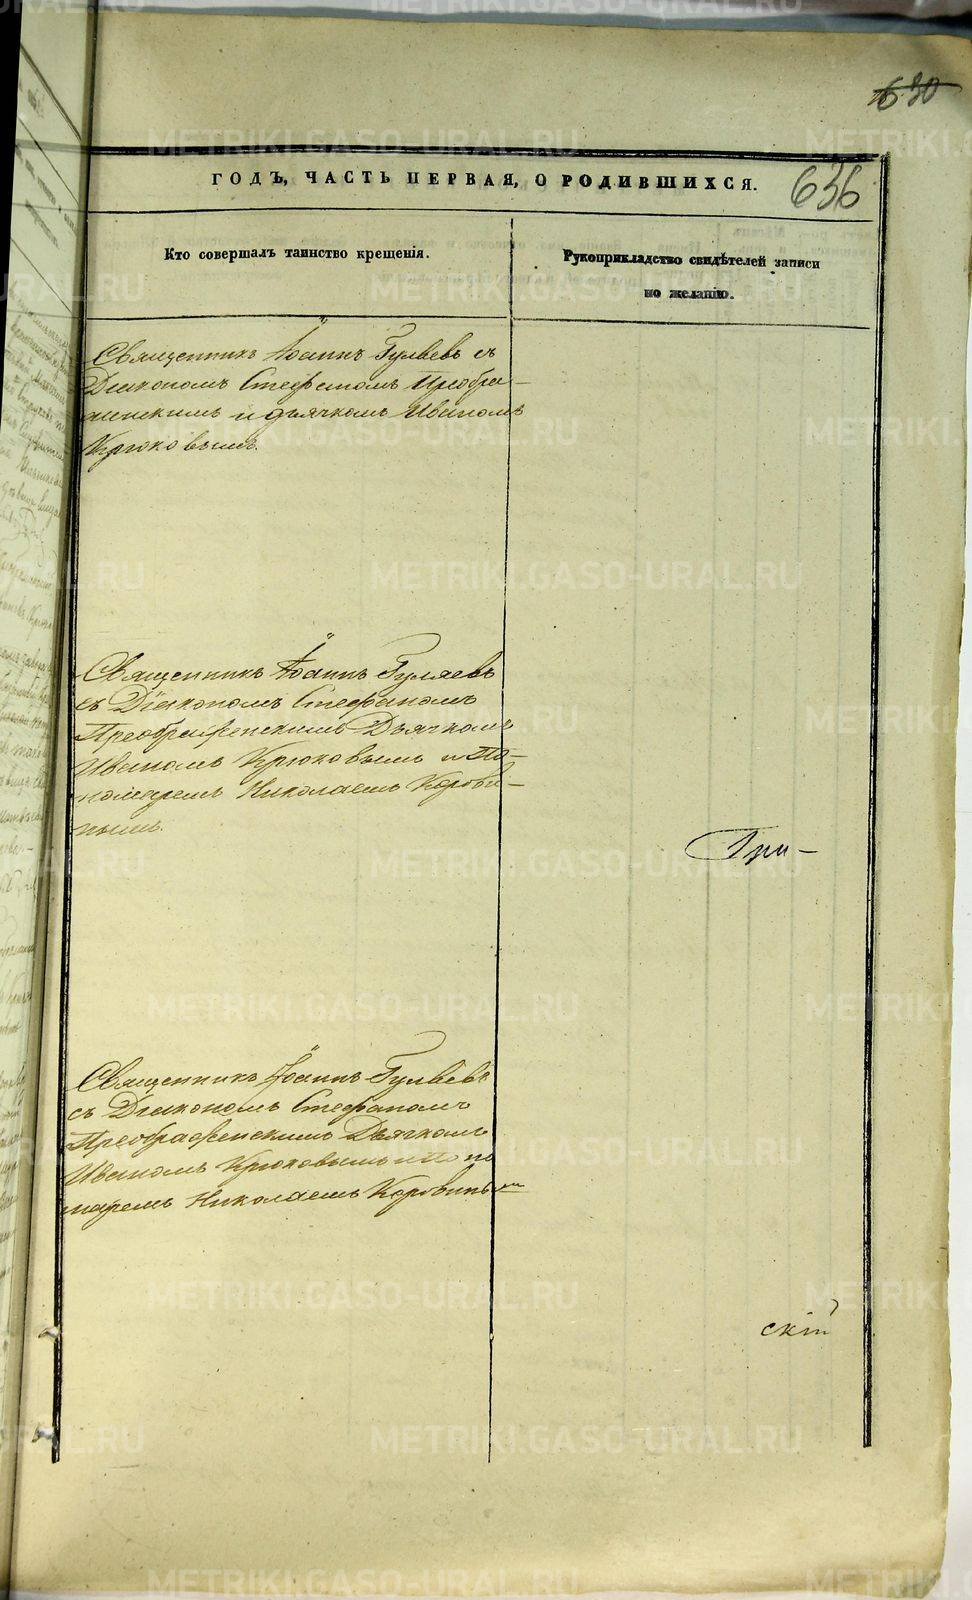 630
ГОДЪ, ЧАСТЬ ПЕРВАЯ, О РОДИВШИХСЯ.
636
Кто совершалъ таинство крещенія.
Рукоприкладство свидѣтелей записи
по желанію.
Священникъ Іоаннъ Гуляевъ съ
Діакономъ Стефаномъ Преобра-
женскимъ и дьячкомъ Иваномъ
Крюковымъ.
Священникъ Іоаннъ Гуляевъ
съ Діакономъ Стефаномъ
Преображенскимъ Дьячкомъ
Иваномъ Крюковымъ и По-
номаремъ Николаемъ Корови-
нымъ.
Гри-
Священникъ Іоаннъ Гуляевъ
съ Діакономъ Стефаномъ
Преображенскимъ Дьячкомъ
Иваномъ Крюковымъ и Поно
маремъ Николаемъ Коровинымъ
скій
METRIKI.GASO-URAL.RU